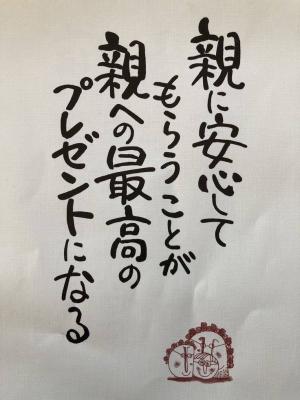 親に安心して
もらうことが
親への最高の
プレゼントになる